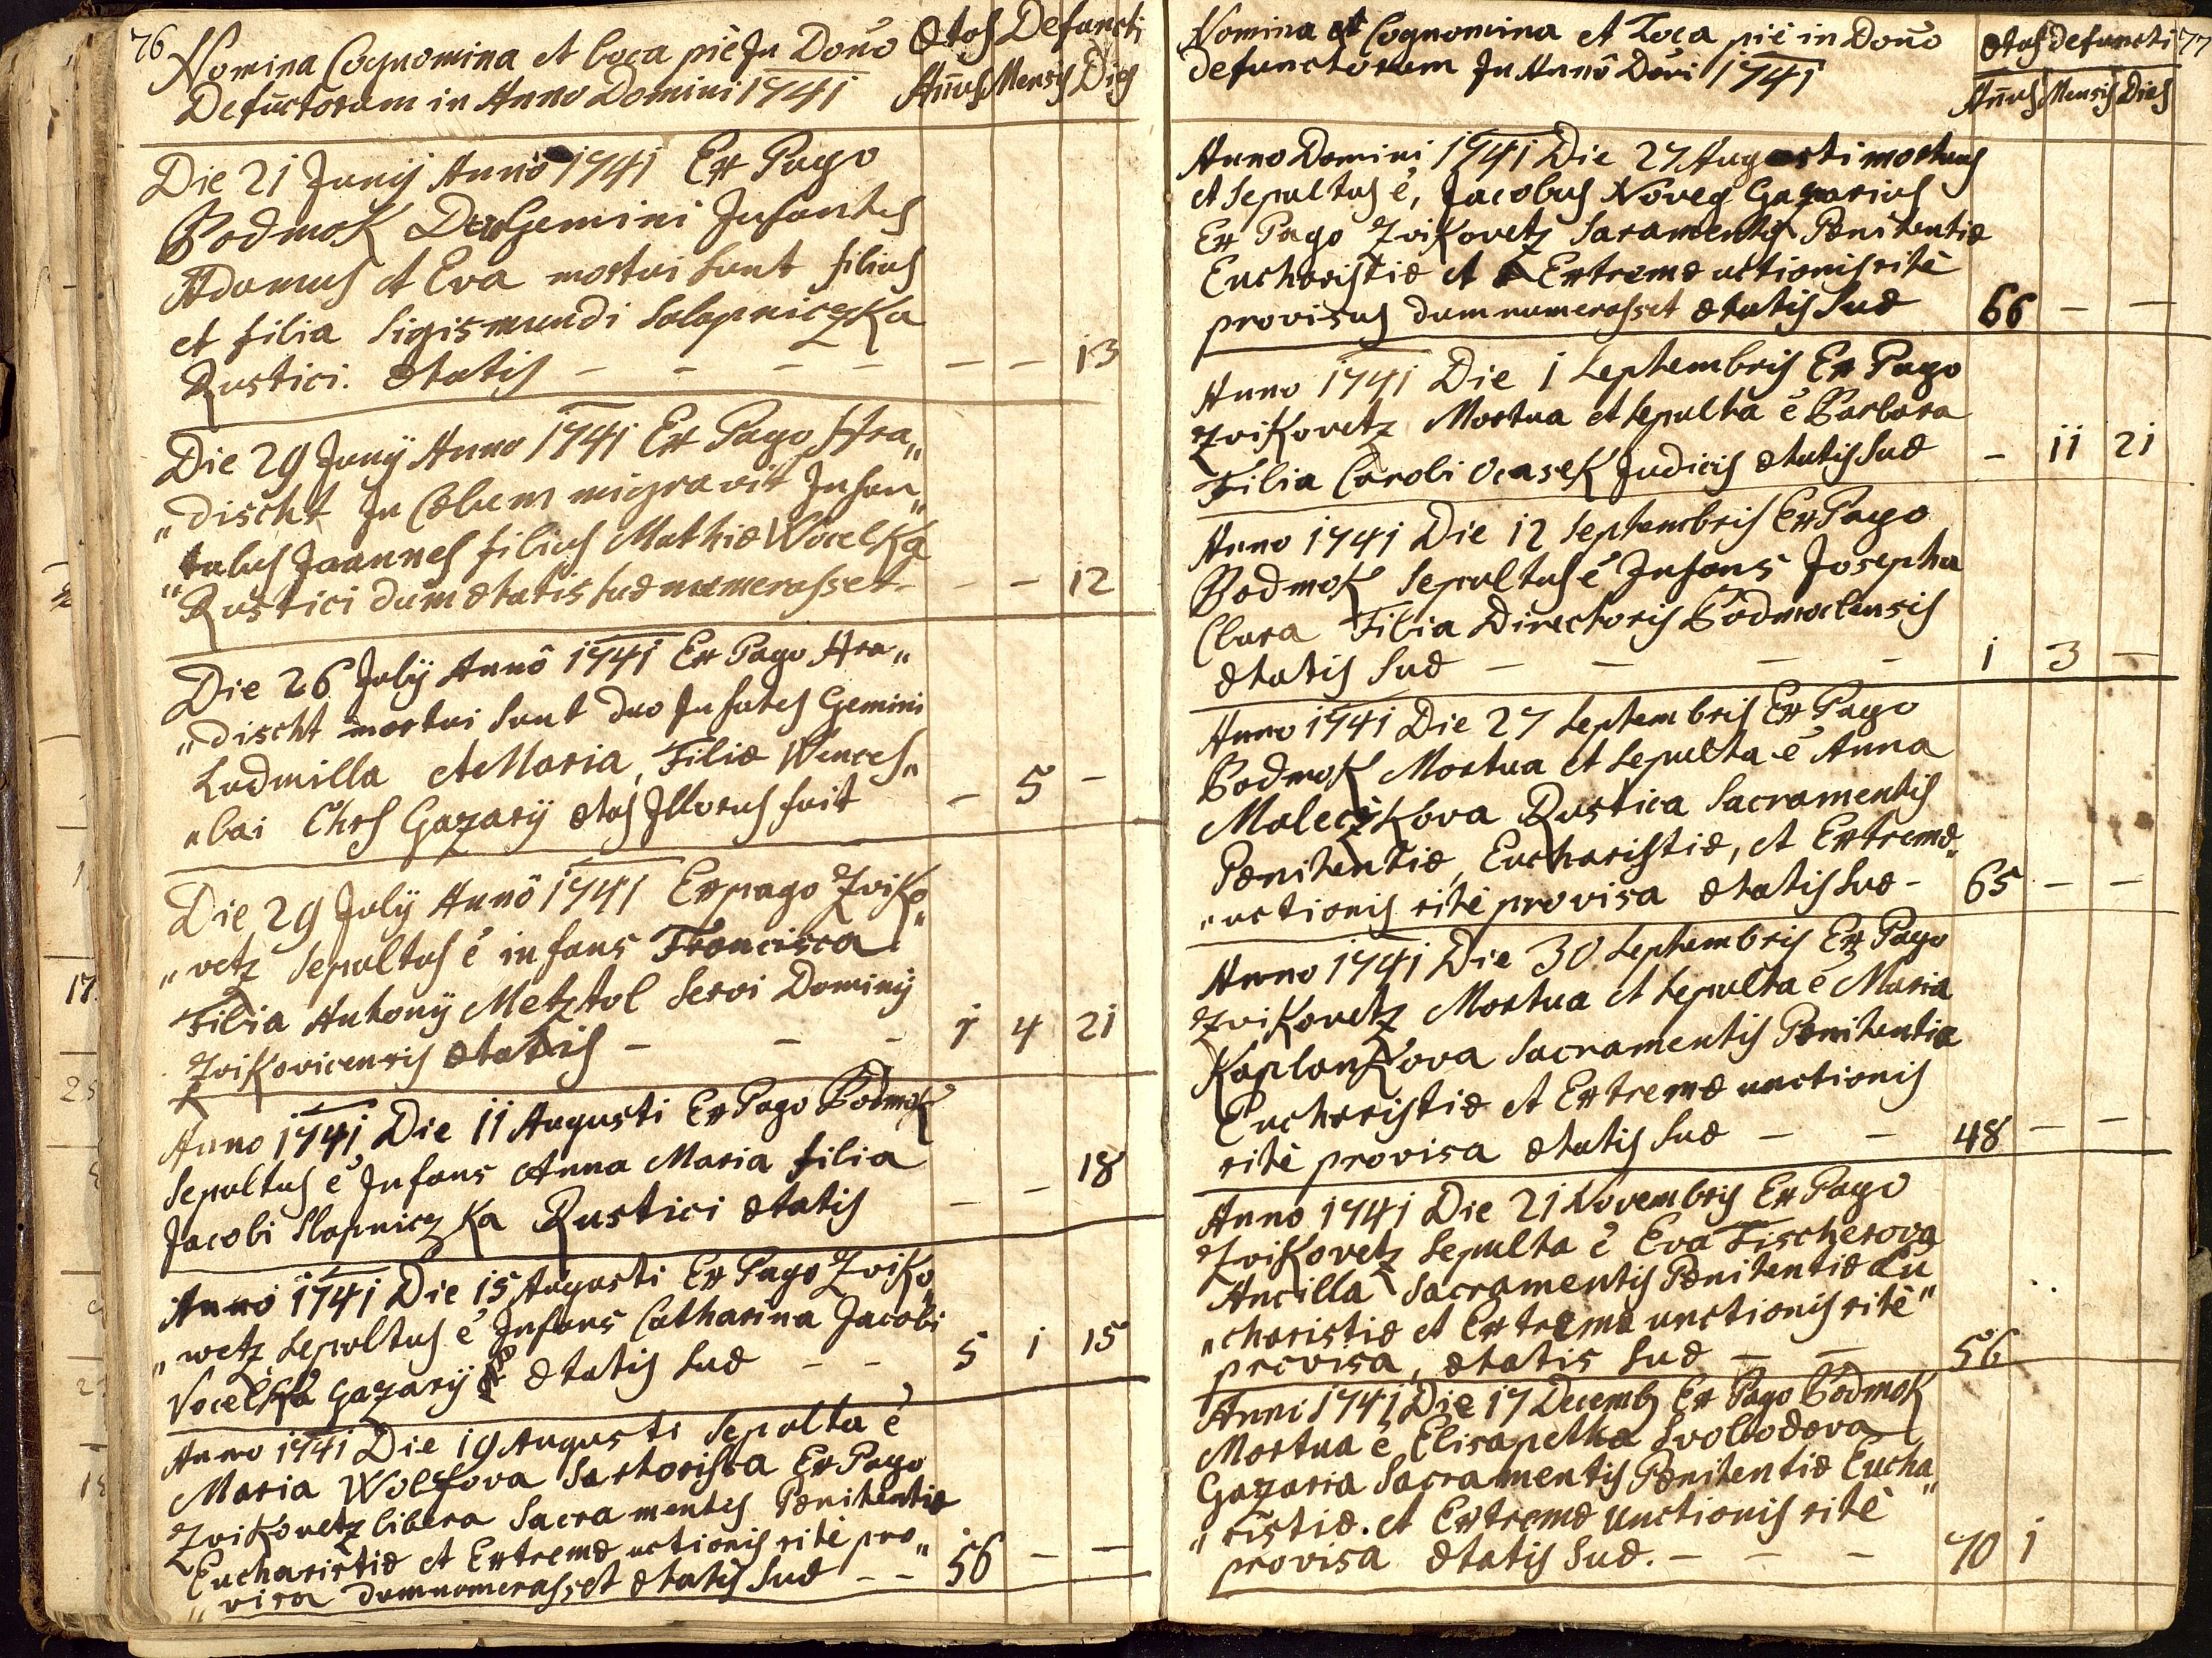 76
Nomina Cognomina et loca piè Jn Dōno
Defūctorum in Anno Domini 1741
Ætas Defuncti
Añus Mensis Dies
Die 21 Junÿ Annô 1741 Ex Pago
Podmok Duo Gemini Jnfantes
Adamus et Eva mortui sunt filius
et filia Sigismundi Salapniczka
Rustici. ætatis - - - - - - 13
Die 29 Junÿ Anno 1741 Ex Pago Hra„
„discht Jn Cœlum migravit Jnfan„
„tulus Joannes filius Mathiæ Wocelka
Rustici dum ætatis suæ numerasset - - 12
Die 26 Julÿ Annô 1741 Ex Pago Hra„
„discht mortui sunt duo Jnfātes Gemini
Ludmilla et Maria, Filiæ Wences„
„lai Chrs Gazarÿ ætas Jllorus fuit - 5 -
Die 29 Julÿ Annô 1741 Ex pago Zviko„
„vetz sepultus ē infans Francisca
Filia Antonÿ Metztol Servi Dominÿ
Zvikovicensis ætatis - - - 1 4 21
Anno 1741 Die 11 Augusti Ex Pago Podmok
Sepultus ē Jnfans Anna Maria filia
Jacobi Slapniczka Rustici ætatis - - 18
Anno 1741 Die 15 Augusti Ex Pago Zviko„
„wetz sepultus ē Jnfans Catharina Jacobi
Vocelka Gazarÿ ætatis suæ - - 5 1 15
Anno 1741 Die 19 Augusti Sepulta ē
Maria Wolfova Sartorissa Ex Pago
Zvikovetz libera Sacramentes Pænitentiæ
Eucharistiæ et Extremæ uctionis ritè pro„
„visa dum numerasset ætatis suæ - - 56 - -
77
Nomina et Cognomina et Loca piè in Dōno
defunctorum Jn Annô Dōni 1741
ætas defuncti
Añus Mensis Dies
Anno Domini 1741 Die 27 Augusti mortuus
et Sepultus ē, Jacobus Noveg Gazarius
Ex Pago Zvikovetz Saramentis Pænitentiæ
Eucharistiæ et Extremæ uctionis ritè
provisus dum numerasset ætatis suæ 66 - -
Anno 1741 Die 1 Septembris Ex Pago
Zvikovetz Mortua et sepulta ē Barbara
Filia Caroli Ocasek Judicis ætatis suæ - 11 21
Anno 1741 Die 12 Septembris Ex Pago
Podmok Sepultus ē Jnfans Josepha
Clara Filia Directoris Podmoclensis
ætatis suæ - - - - 1 3 -
Anno 1741 Die 27 Septembris Ex Pago
Podmok Mortua et sepulta ē Anna
Maleczkova Rustica Sacramentis
Pænitentiæ, Eucharistiæ, et Extremæ
„uctionis ritè provisa ætatis suæ - 65 - -
Anno 1741 Die 30 Septembris Ex Pago
Zvikovetz Mortua et sepulta ē Maria
Kaplankova Sacramentis Pænitentia
Eucharistiæ et Extremæ unctionis
ritè provisa ætatis suæ - - 48 - -
Anno 1741 Die 21 Novembris Ex Pago
Zvikovetz Sepulta ē Eva Fischerova
Ancilla Sacramentis Pænitentiæ Eu
„charistiæ et Extremæ unctionis ritè„
provisa, ætatis suæ - - 56
Anni 1741 Die 17 Decemb Ex Pago Podmok
Mortua ē Elisapetha Svobodova
Gazaria Sacramentis Pænitentiæ Eucha„
„ristiæ. et Extremæ Unctionis ritè
provisa ætatis Suæ. - - - 70 1